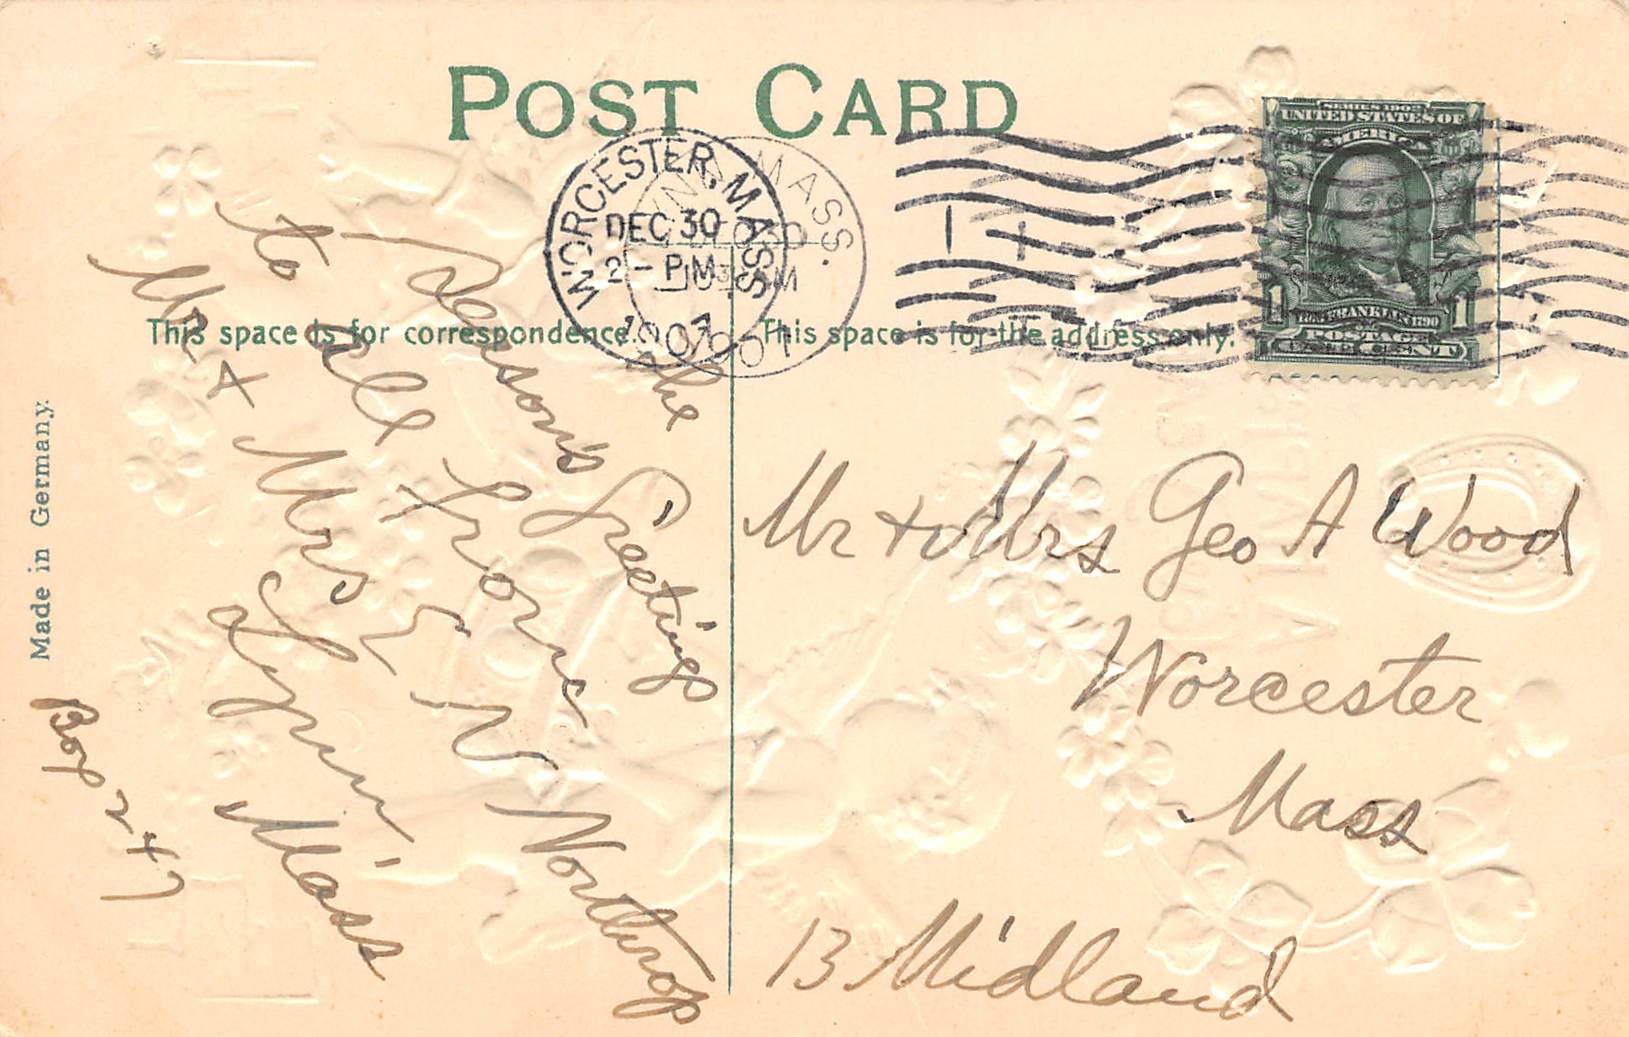 POST CARD
WORCESTER, MASS.
DEC 30
2 - PM
1907
MASS.
SERIES 1902
UNITED STATES OF
AMERICA
1 FRANKLIN 1790 1
POSTAGE
ONE CENT
This space is for correspondence.
This space is for the address only.
Made in Germany.
The
Season's Greetings
to all from
Mr + Mrs E N Northrop
Lynn Mass
Box 247
Mr + Mrs Geo A Wood
Worcester
Mass
13 Midland